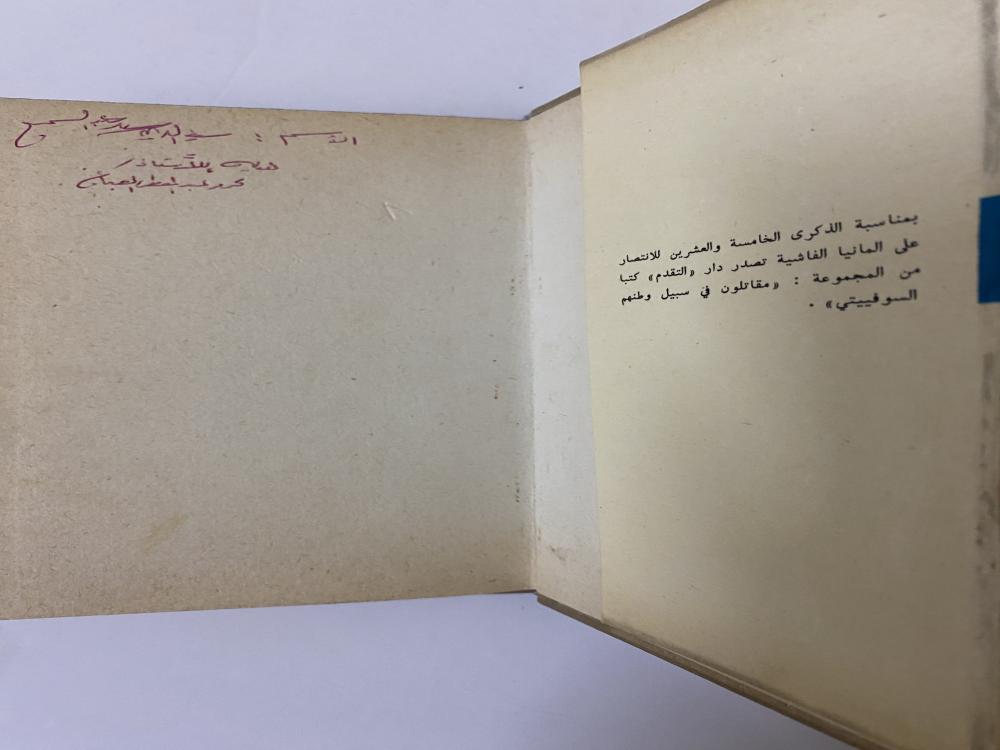 الاسم : سعد عبد السميع
هدية للأستاذ /
بمناسبة الذكرى الخامسة والعشرين للانتصار
على المانيا الفاشية تصدر دار «التقدم» كتبا
من المجموعة : «مقاتلون في سبيل وطنهم
السوفييتي» .